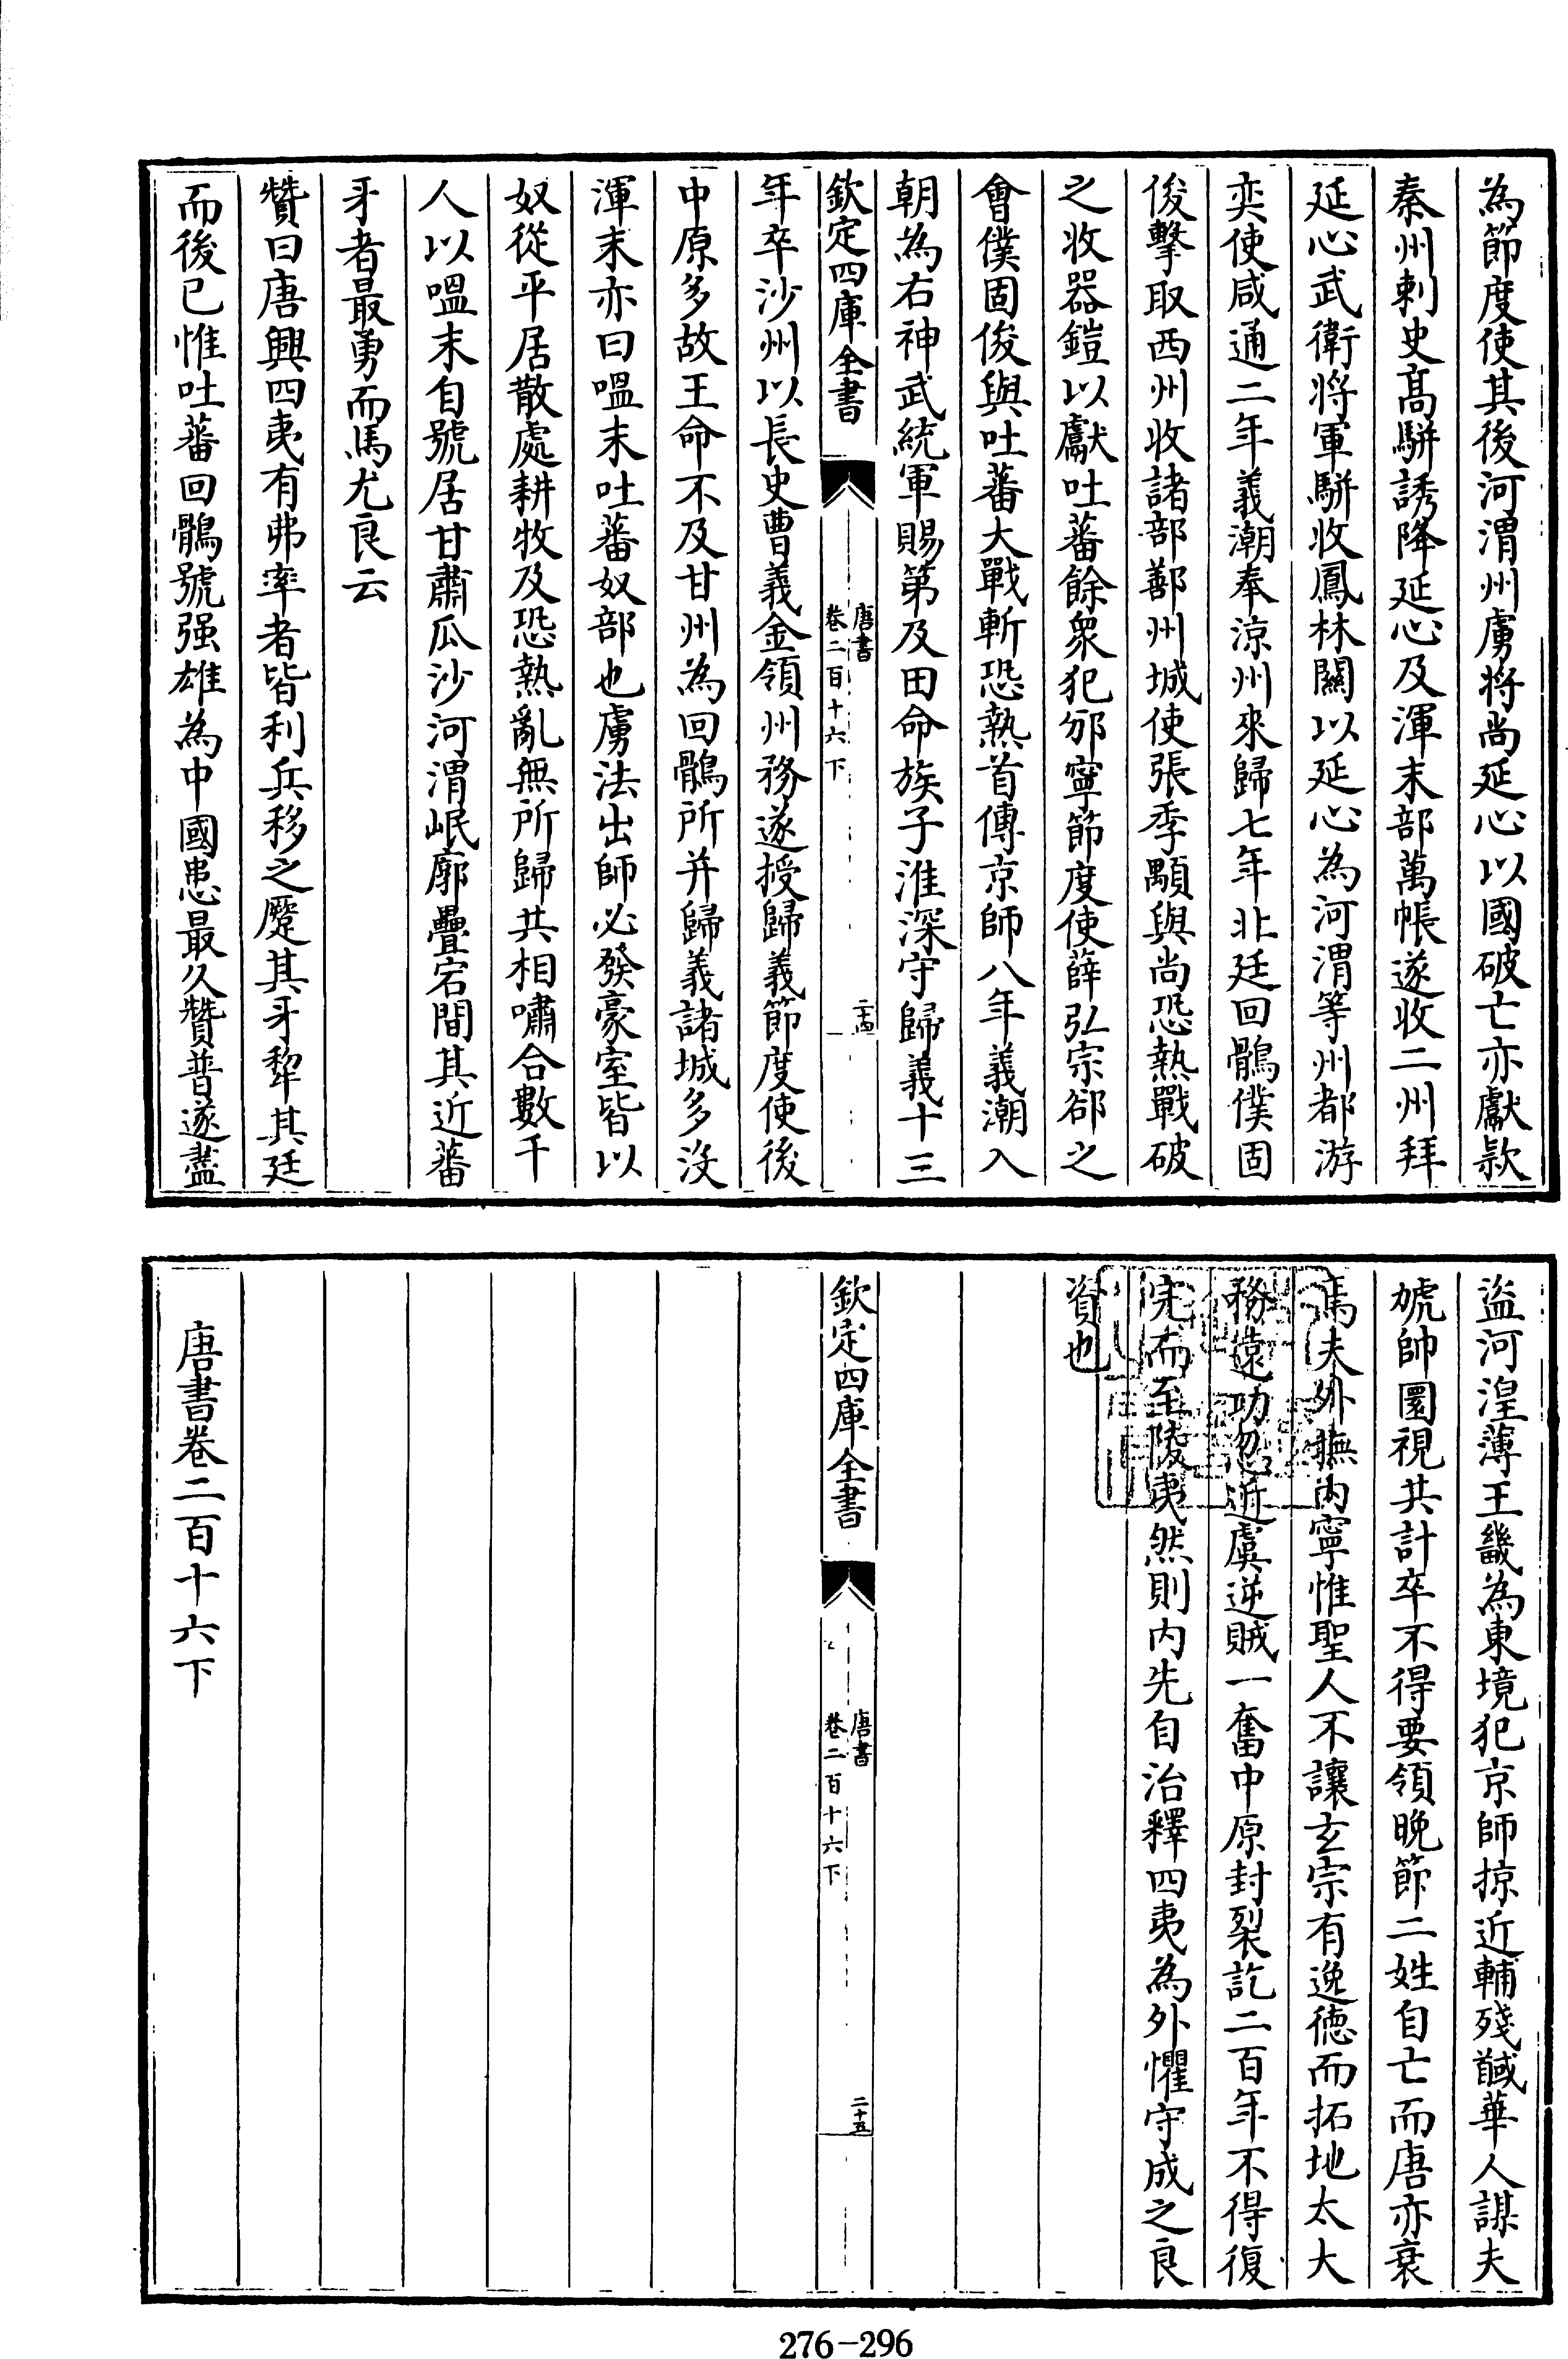 為節度使其後河渭州虜將尚延心以國破亡亦獻款
秦州刺史高駢誘降延心及渾末部萬帳遂收二州拜
延心武衛將軍駢收鳳林關以延心為河渭等州都游
奕使咸通二年義潮奉涼州來歸七年北廷回鶻僕固
俊擊取西州收諸部鄯州城使張季顒與尚恐熱戰破
之收器鎧以獻吐蕃餘衆犯邠寧節度使薛弘宗郤之
會僕固俊與吐蕃大戰斬恐熱首傳京師八年義潮入
朝為右神武統軍賜第及田命族子淮深守歸義十三
欽定四庫全書
唐書
卷二百十六下
二十四
年卒沙州以長史曹義金領州務遂授歸義節度使後
中原多故王命不及甘州為回鶻所并歸義諸城多沒
渾末亦曰嗢末吐蕃奴部也虜法出師必發豪室皆以
奴從平居散處耕牧及恐熱亂無所歸共相嘯合數千
人以嗢末自號居甘肅瓜沙河渭岷廓疊宕間其近蕃
牙者最勇而馬尤良云
贊曰唐興四夷有弗率者皆利兵移之蹷其牙犂其廷
而後已惟吐蕃回鶻號强雄為中國患最久贊普遂盡
盜河湟薄王畿為東境犯京師掠近輔殘馘華人謀夫
虓帥圜視共計卒不得要領晚節二姓自亡而唐亦衰
焉夫外撫內寧惟聖人不讓玄宗有逸德而拓地太大
務遠功忽近虞逆賊一奮中原封裂訖二百年不得復
完而至陵夷然則內先自治釋四夷為外懼守成之良
資也
欽定四庫全書
唐書
卷二百十六下
二十五
唐書卷二百十六下
276-296